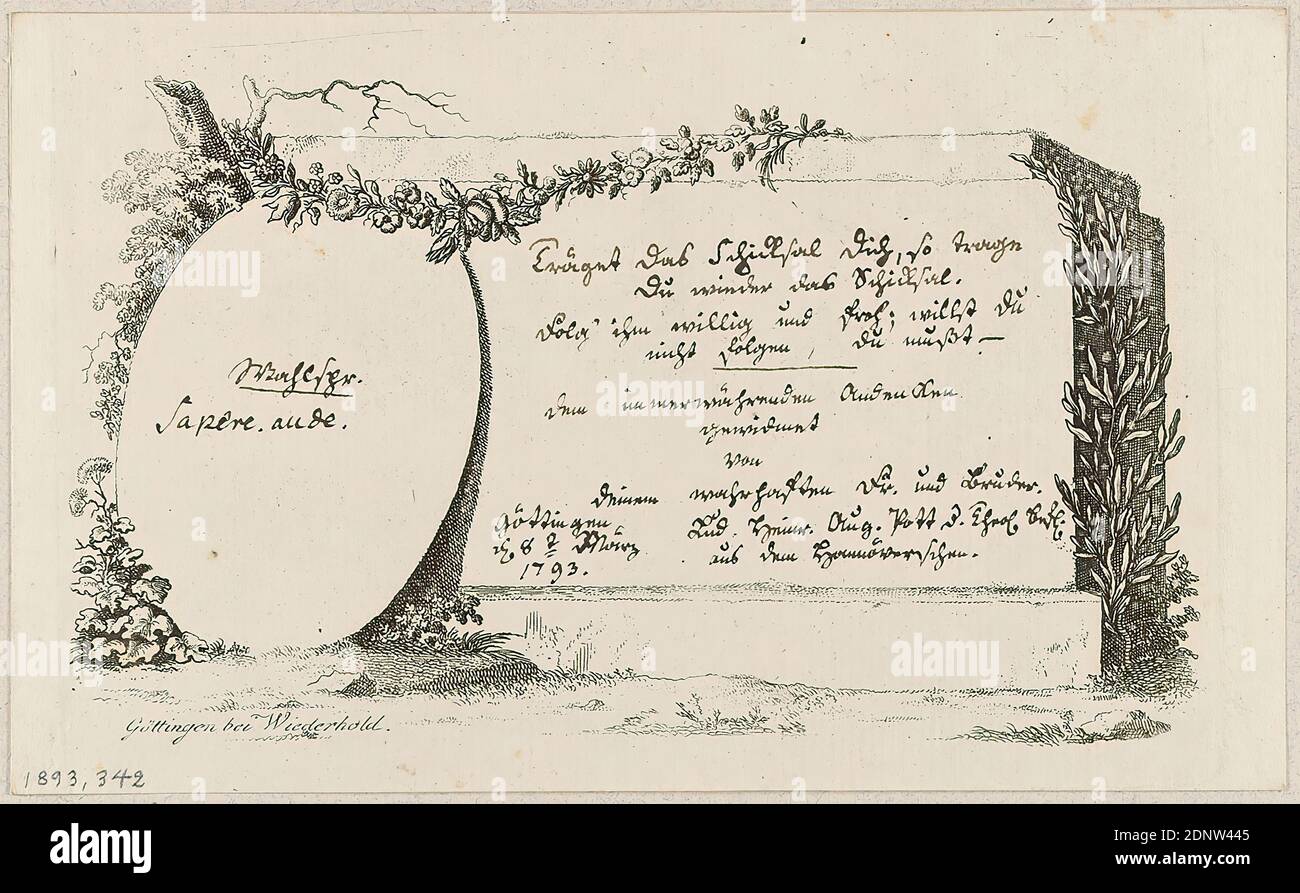 Wahlspr.
Sapere. aude.
Träget das Schicksal Dich, so trage
Du wieder das Schicksal.
Folg' ihm willig und froh; willst Du
nicht folgen, Du mußt –
dem immerwährenden Andenken
gewidmet
von
deinem wahrhaften Fr. und Bruder.
Göttingen
d. 8 t März
1793.
Heinr. Aug. Pott d. Theol.
aus dem Hannöverschen.
Göttingen bei Wiederhold.
1893, 342
alamy
Image ID: 2DNW445
www.alamy.com